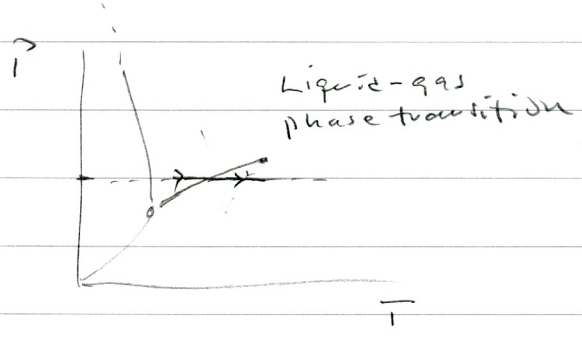 P
Liquid-gas
phase transition
T